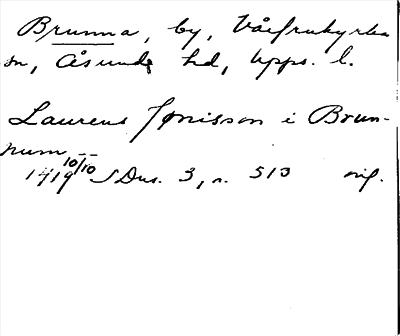 Brunna, by, Vårfrukyrka
sn, Åsunda hd, Upps. l.
Laurens Jønisson i Brun-
num
1419 10/10 SDns. 3, n. 513 orig.